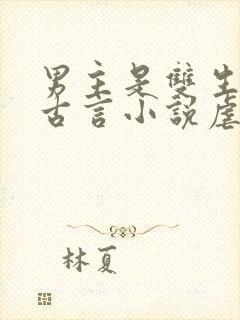 男主是雙生
古言小說虐
林夏